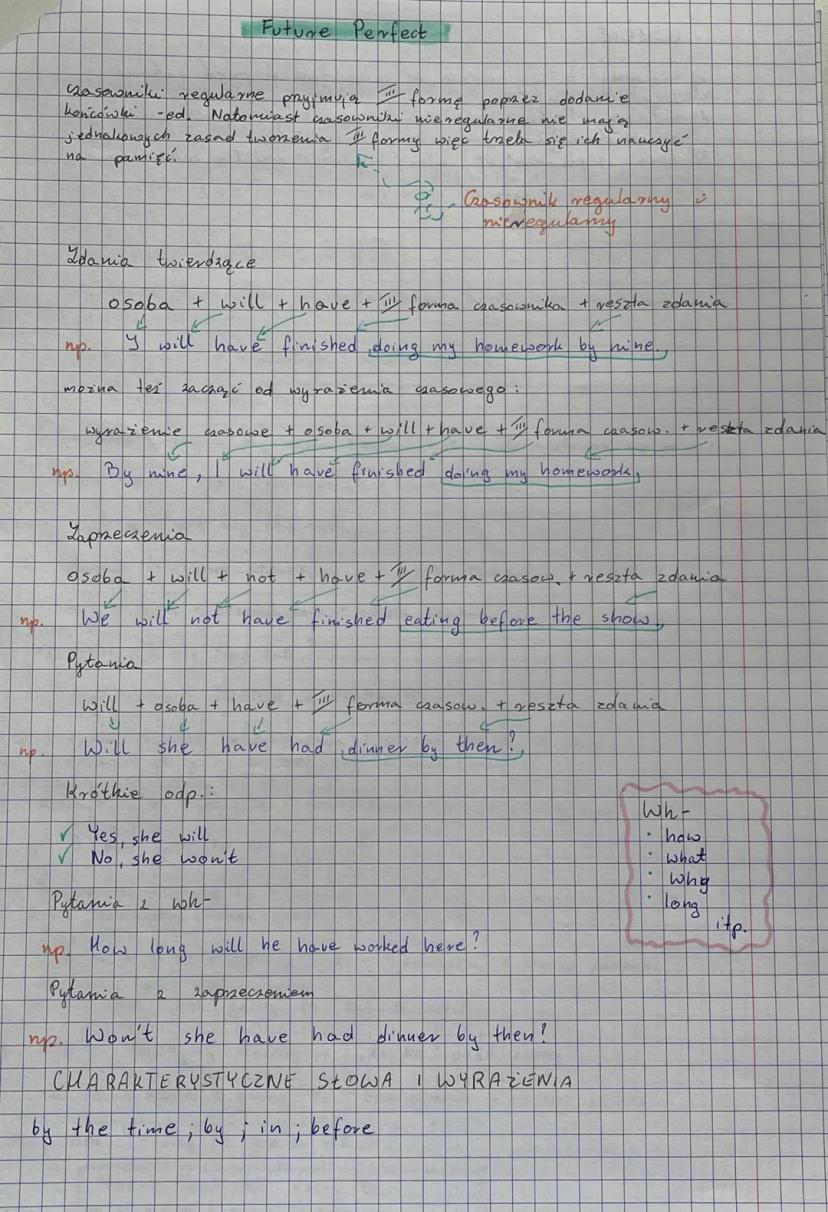 Future Perfect
Czasowniki regularne przyjmują III formę poprzez dodanie
końcówki -ed. Natomiast czasowniki nieregularne nie mają
jednakowych zasad tworzenia III formy więc trzeba się ich nauczyć
na pamięć.
Czasownik regularny i
nieregularny
Zdania twierdzące
osoba + will + have + III forma czasownika + reszta zdania
np. I will have finished doing my homework by nine.
można też zacząć od wyrażenia czasowego:
wyrażenie czasowe + osoba + will + have + III forma czasow. + reszta zdania
np. By nine, I will have finished doing my homework.
Zaprzeczenia
osoba + will + not + have + III forma czasow. + reszta zdania
np. We will not have finished eating before the show.
Pytania
will + osoba + have + III forma czasow. + reszta zdania
np. Will she have had dinner by then?
Krótkie odp.:
✓ Yes, she will
✓ No, she won't
Wh-
· how
· what
· why
· long
itp.
Pytania z wh-
np. How long will he have worked here?
Pytania z zaprzeczeniem
np. Won't she have had dinner by then?
CHARAKTERYSTYCZNE SŁOWA I WYRAŻENIA
by the time ; by ; in ; before